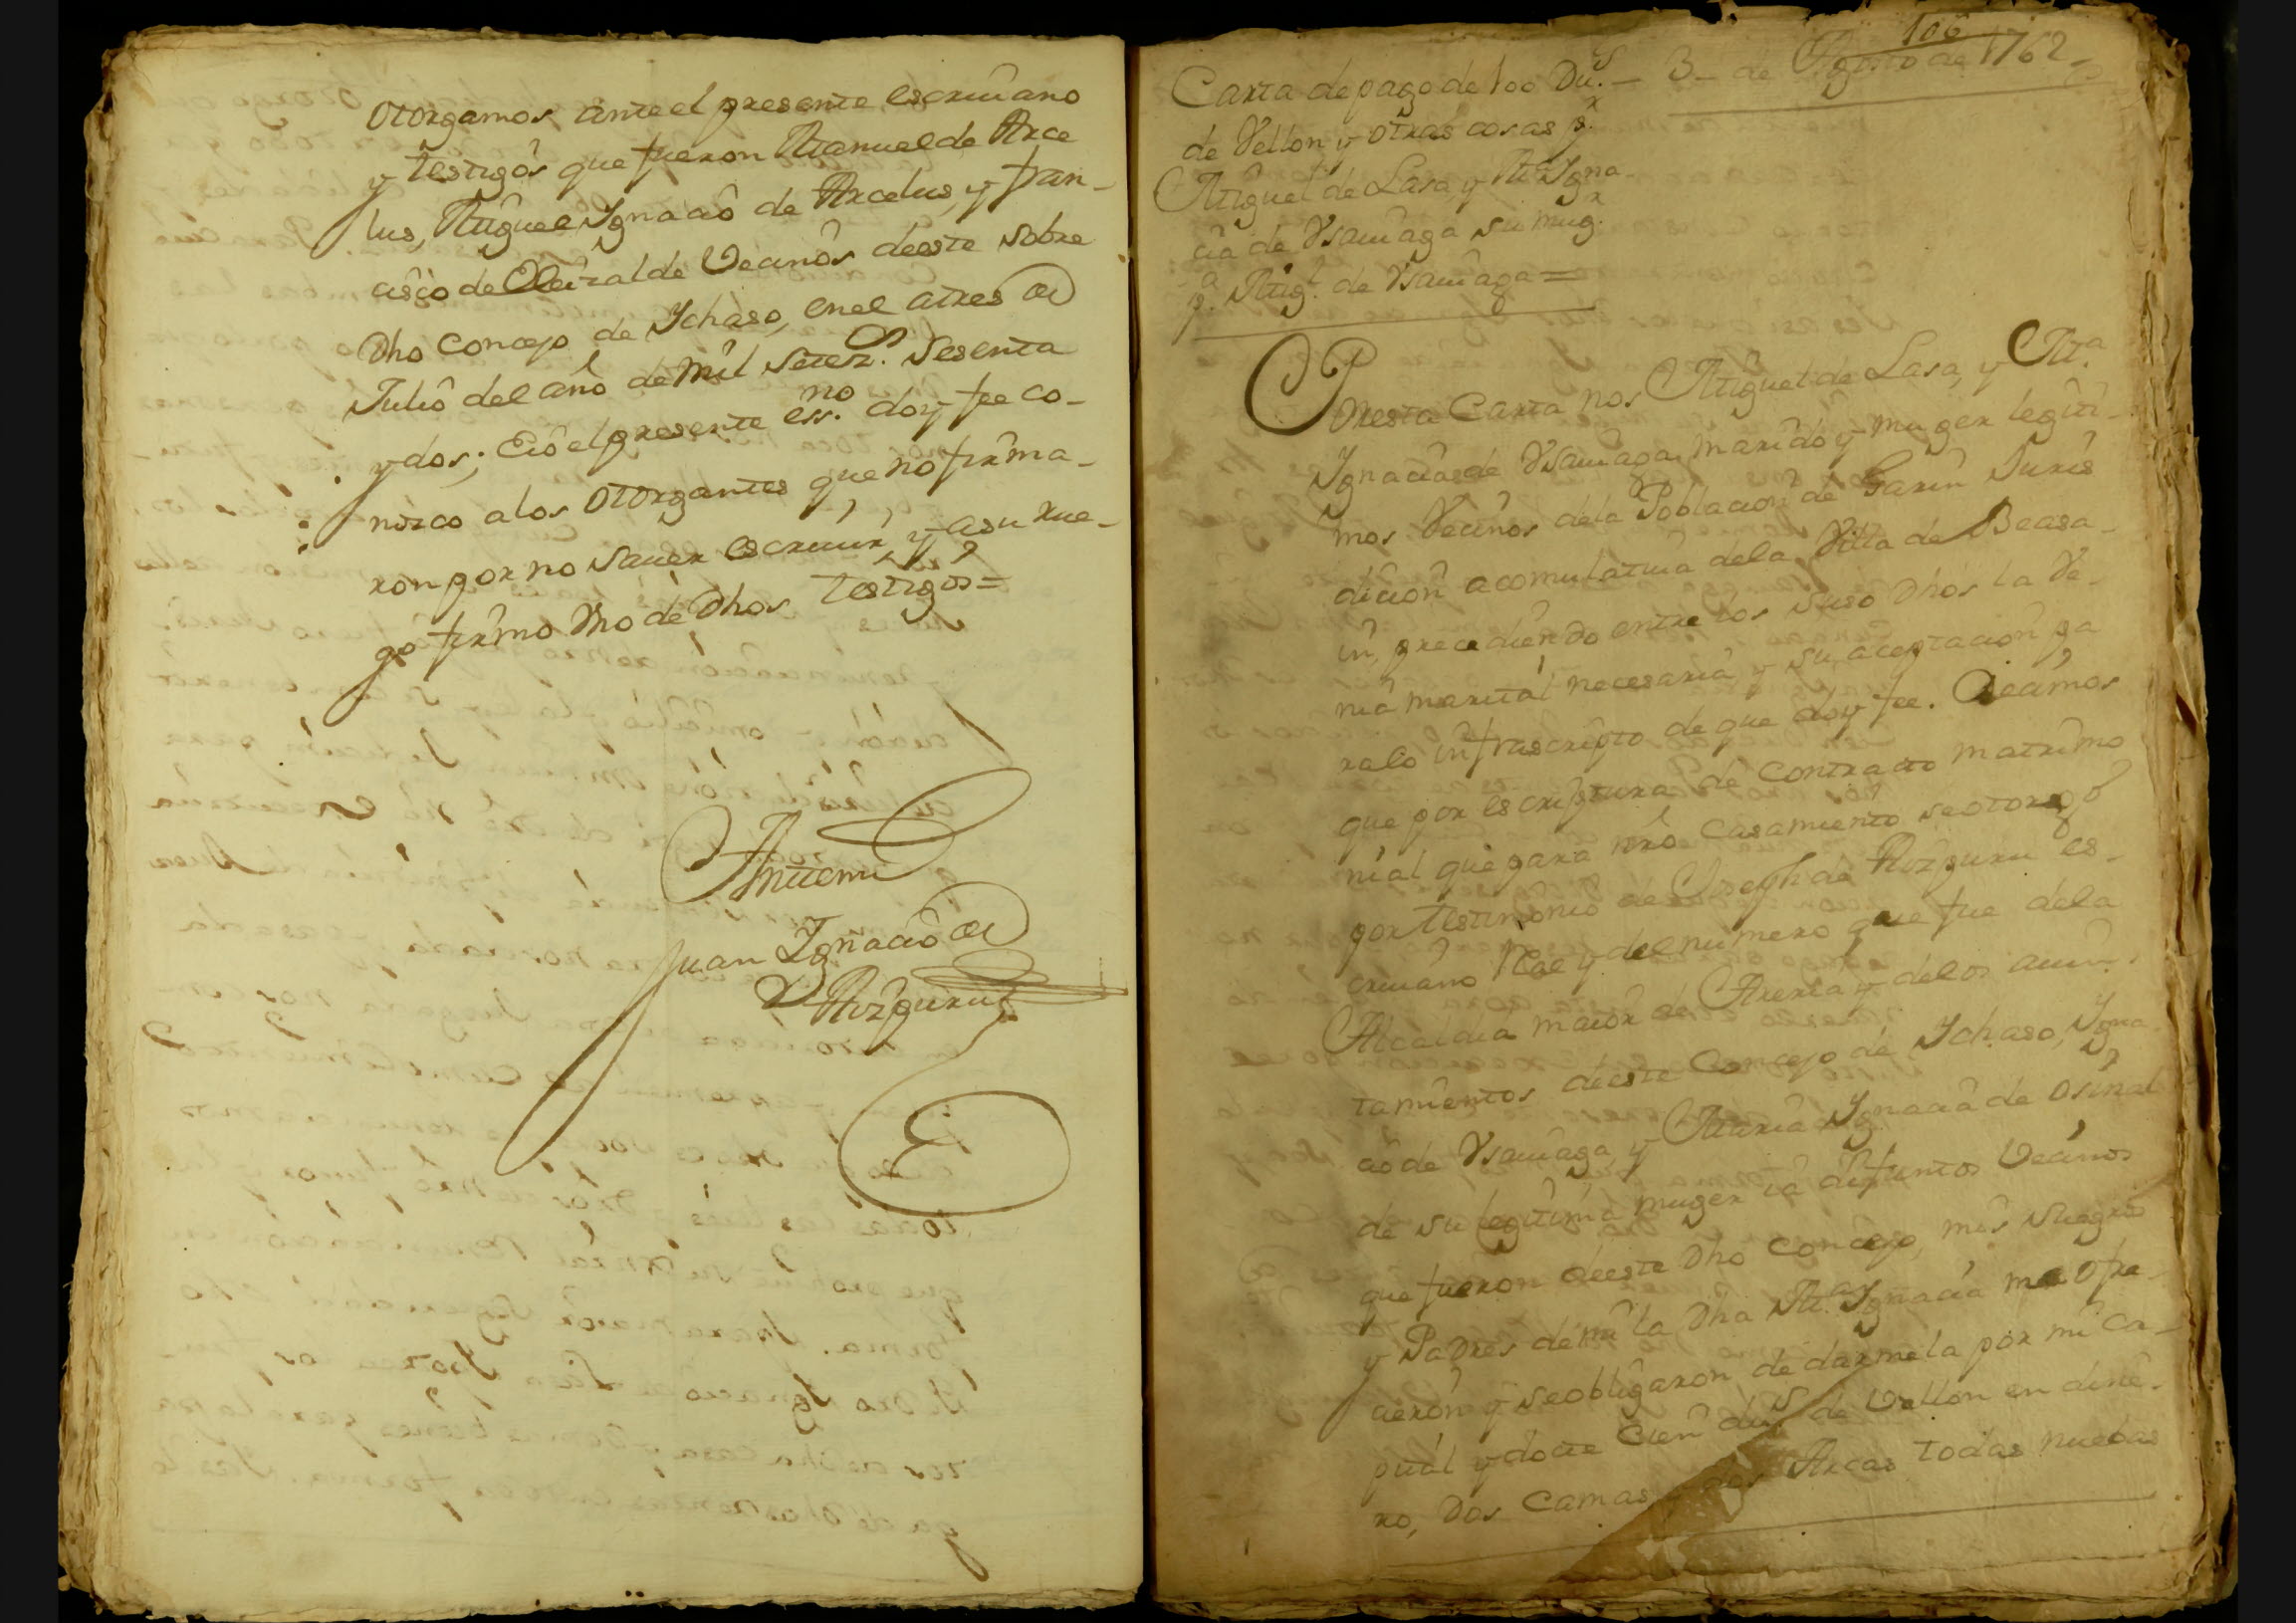 otorgamos ante el presente escriuano
y testigos que fueron Manuel de Arce
lus, Miguel Ygnacio de Arcelus, y fran-
cisco de Oleizalde Vecinos deeste sobre
Dho Concejo de Ychaso, en el a tres de
Julio del año de mil setez.s sesenta
y dos; E io el presente ess.no doy fee co-
nozco a los otorgantes que no firma-
ron por no sauer escriuir, y a su rue-
go firmo Vno de Dhos testigos=
Antemi
Juan Ygnacio de
Aizpuru
106
Carta de pago de 100 Du.s – 3– de Agosto de 1762–
de Vellon y otras cosas p.r
Miguel de Lasa, y M.a Ygna-
cia de Vsauiaga su mug.r
p.a Mig.l de Vsauiaga=
Presta Carta nos Miguel de Lasa, y M.a
Ygnacia de Vsauiaga, marido y muger legiti-
mos Vecinos dela Poblacion de Garin Juris
dicion acomulatiua dela Villa de Beasa-
in, precediendo entre los suso Dhos la Ve-
nia marital necesaria, y su aceptacion pa
ra lo infrascripto de que doy fee. Decimos
que por escriptura de Contracto matrimo
nial que para nro casamiento se otorgo
por testimonio de Joseph de Aizpuru es-
criuano Real y del numero que fue dela
Alcaldia maior de Areria y delos aiun-
tamientos deeste Concejo de Ychaso, Ygna-
cio de Vsauiaga, y Maria Ygnacia de Osinal
de su legitima muger ia difuntos Vecinos
que fueron deeste Dho Concejo, mis suegros
y Padres de mi la Dha M.a Ygnacia me ofre-
cieron y se obligaron de darmela por mi ca-
pital y docte Cien du.s de Vellon en dine-
ro, Dos Camas, y dos Arcas todas nuebas